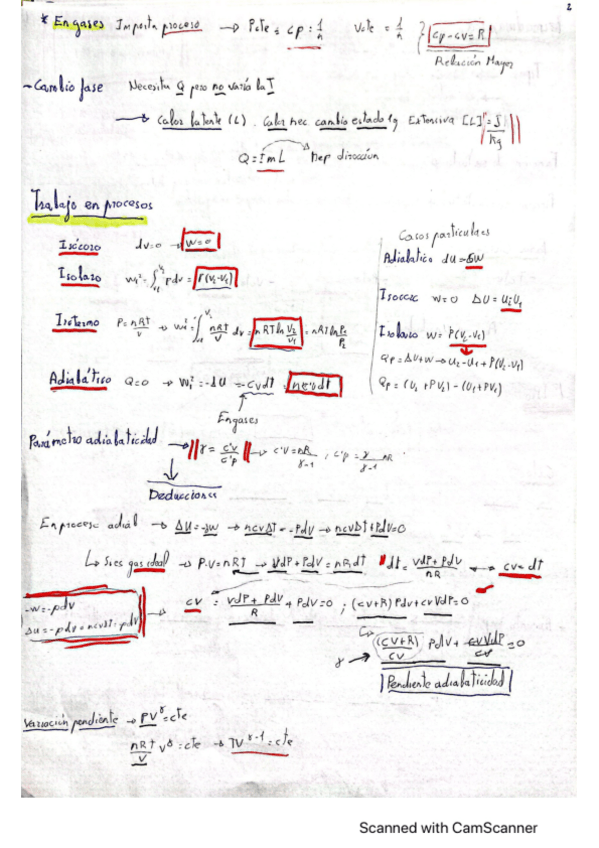 2
* En gases Importa proceso → P cte = cp : 1/n V cte = 1/n { cp - cv = R
Relación Mayer
- Cambio fase Necesita Q pero no varía la T
→ Calor latente (L). Calor nec. cambio estado 1g Extensiva [L] = J/kg
Q = ± m L Dep dirección
Trabajo en procesos
Isócoro dv=0 → W=0
Isobaro W₁² = ∫ pdv = P(V₂-V₁)
Isotermo P = nRT/V → W₁² = ∫ nRT/V dv = nRT ln V₂/V₁ = nRT ln P₁/P₂
Adiabático Q=0 → W₁² = -ΔU
En gases
Casos particulares
Adiabático dU = δW
Isocoro W=0 ΔU = U₂-U₁
Isobaro W = P(V₂-V₁)
Qp = ΔU+W → U₂-U₁ + P(V₂-V₁)
Qp = (U₂ + PV₂) - (U₁ + PV₁)
Parámetro adiabaticidad → γ = c'v/c'p → c'v = nR/γ-1 ; c'p = γ/γ-1 nR
Deducciones
En proceso adiab → ΔU = -W → ncvΔt = -PdV → ncvΔt + PdV = 0
↳ Si es gas ideal → P·V = nRT → VdP + PdV = nRdt dt = VdP + PdV / nR → cv = dt
-W = -pdV
ΔU = -pdV = ncvΔt = pdV
→ cv = VdP + PdV / R + PdV = 0 ; (cv+R) PdV + cvVdP = 0
γ → (cv+R)/cv PdV + cvVdP/cv = 0
Pendiente adiabaticidad
Variación pendiente → PV^γ = cte
nRT/V V^γ = cte → TV^γ-1 = cte
Scanned with CamScanner